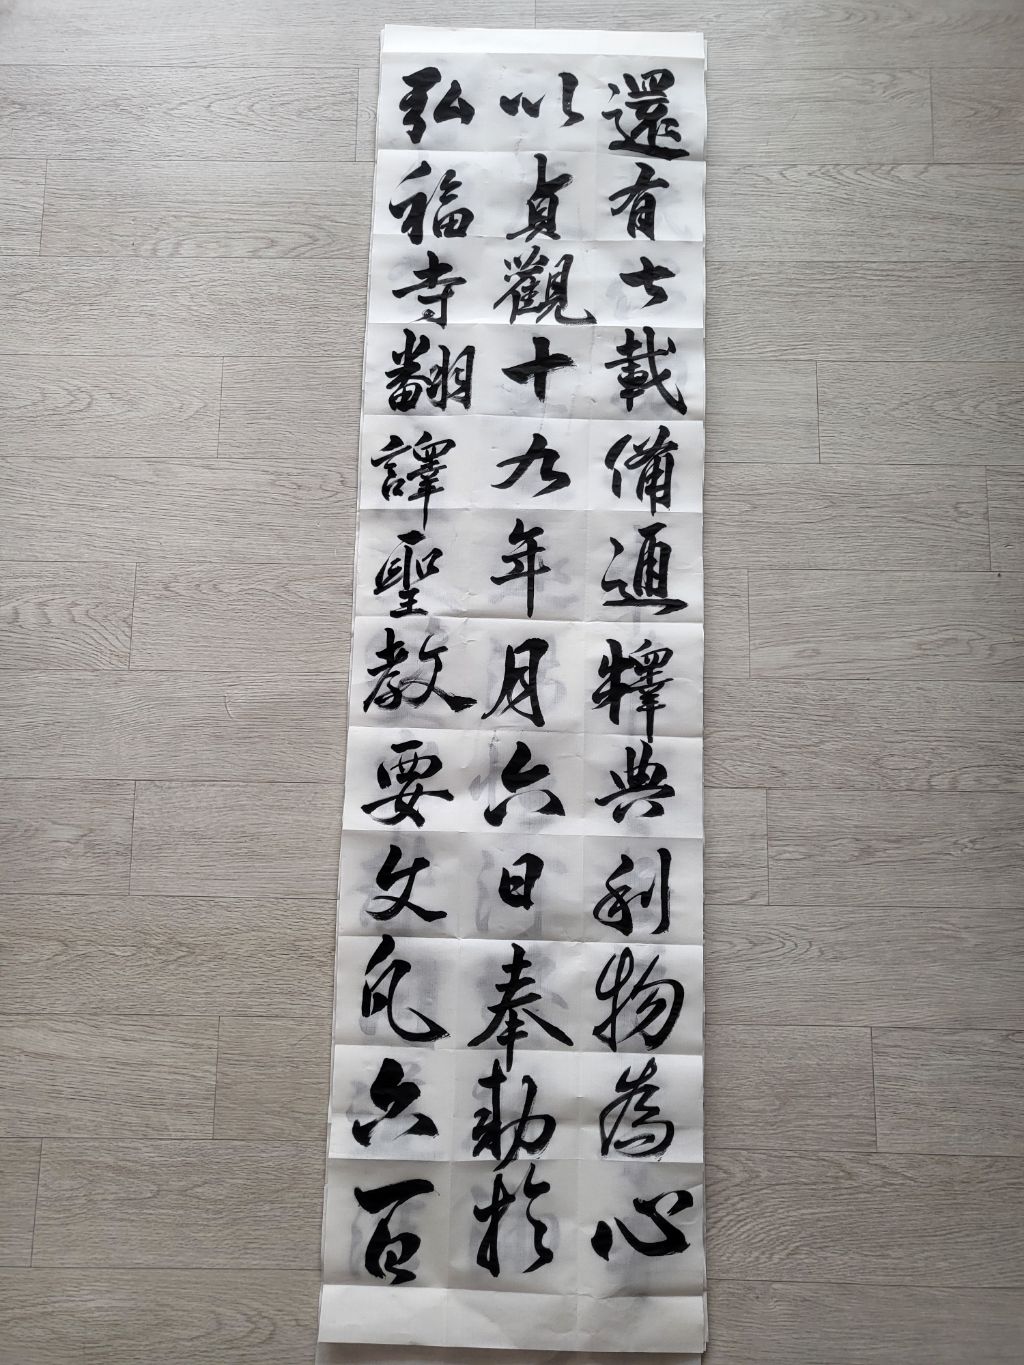 還有七載備通釋典利物為心
以貞觀十九年月六日奉勅於
弘福寺翻譯聖教要文凡六百